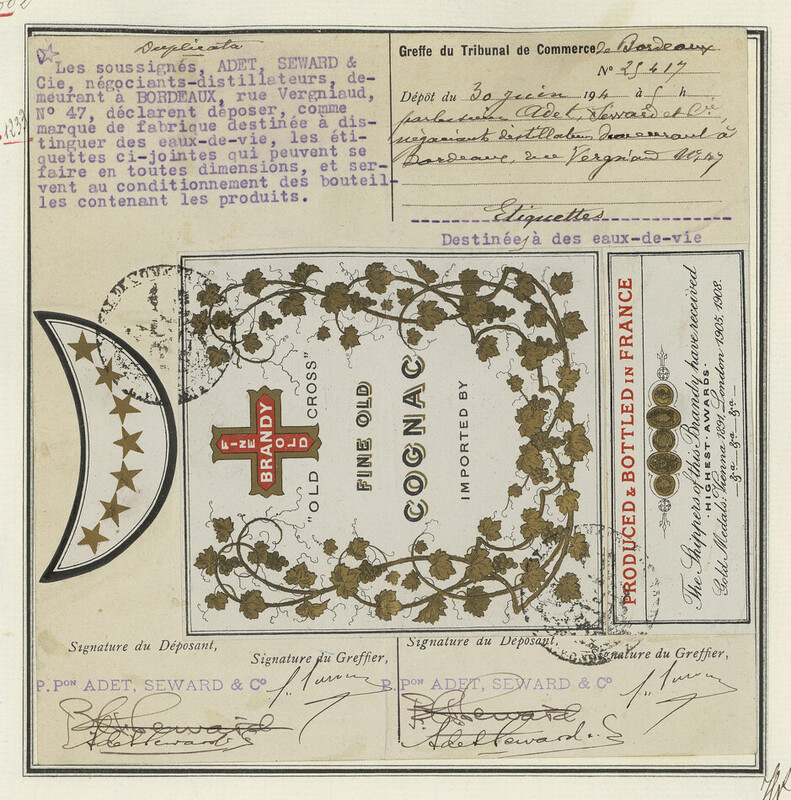 Duplicata
Les soussignés, ADET, SEWARD &
Cie, négociants-distillateurs, de-
meurant à BORDEAUX, rue Vergniaud,
N° 47, déclarent déposer, comme
marque de fabrique destinée à dis-
tinguer des eaux-de-vie, les éti-
quettes ci-jointes qui peuvent se
faire en toutes dimensions, et ser-
vent au conditionnement des bouteil-
les contenant les produits.
1233
Greffe du Tribunal de Commerce de Bordeaux
N° 25417
Dépôt du 30 juin 194 à 5 h
Adet, Seward et Cie,
négociants distillateurs demeurant à
Bordeaux, rue Vergniaud N° 47
Etiquettes
Destinées à des eaux-de-vie
FINE OLD
BRANDY
"OLD CROSS"
FINE OLD
COGNAC
IMPORTED BY
PRODUCED & BOTTLED IN FRANCE
The Shippers of this Brandy have received
· HIGHEST · AWARDS ·
Gold Medals: Vienna 1891, London 1905, 1908.
&a — &a — &a —
Signature du Déposant,
Signature du Greffier,
P. PON ADET, SEWARD & CO
Adet Seward & C
Signature du Déposant,
Signature du Greffier,
P. PON ADET, SEWARD & CO
Adet Seward & C